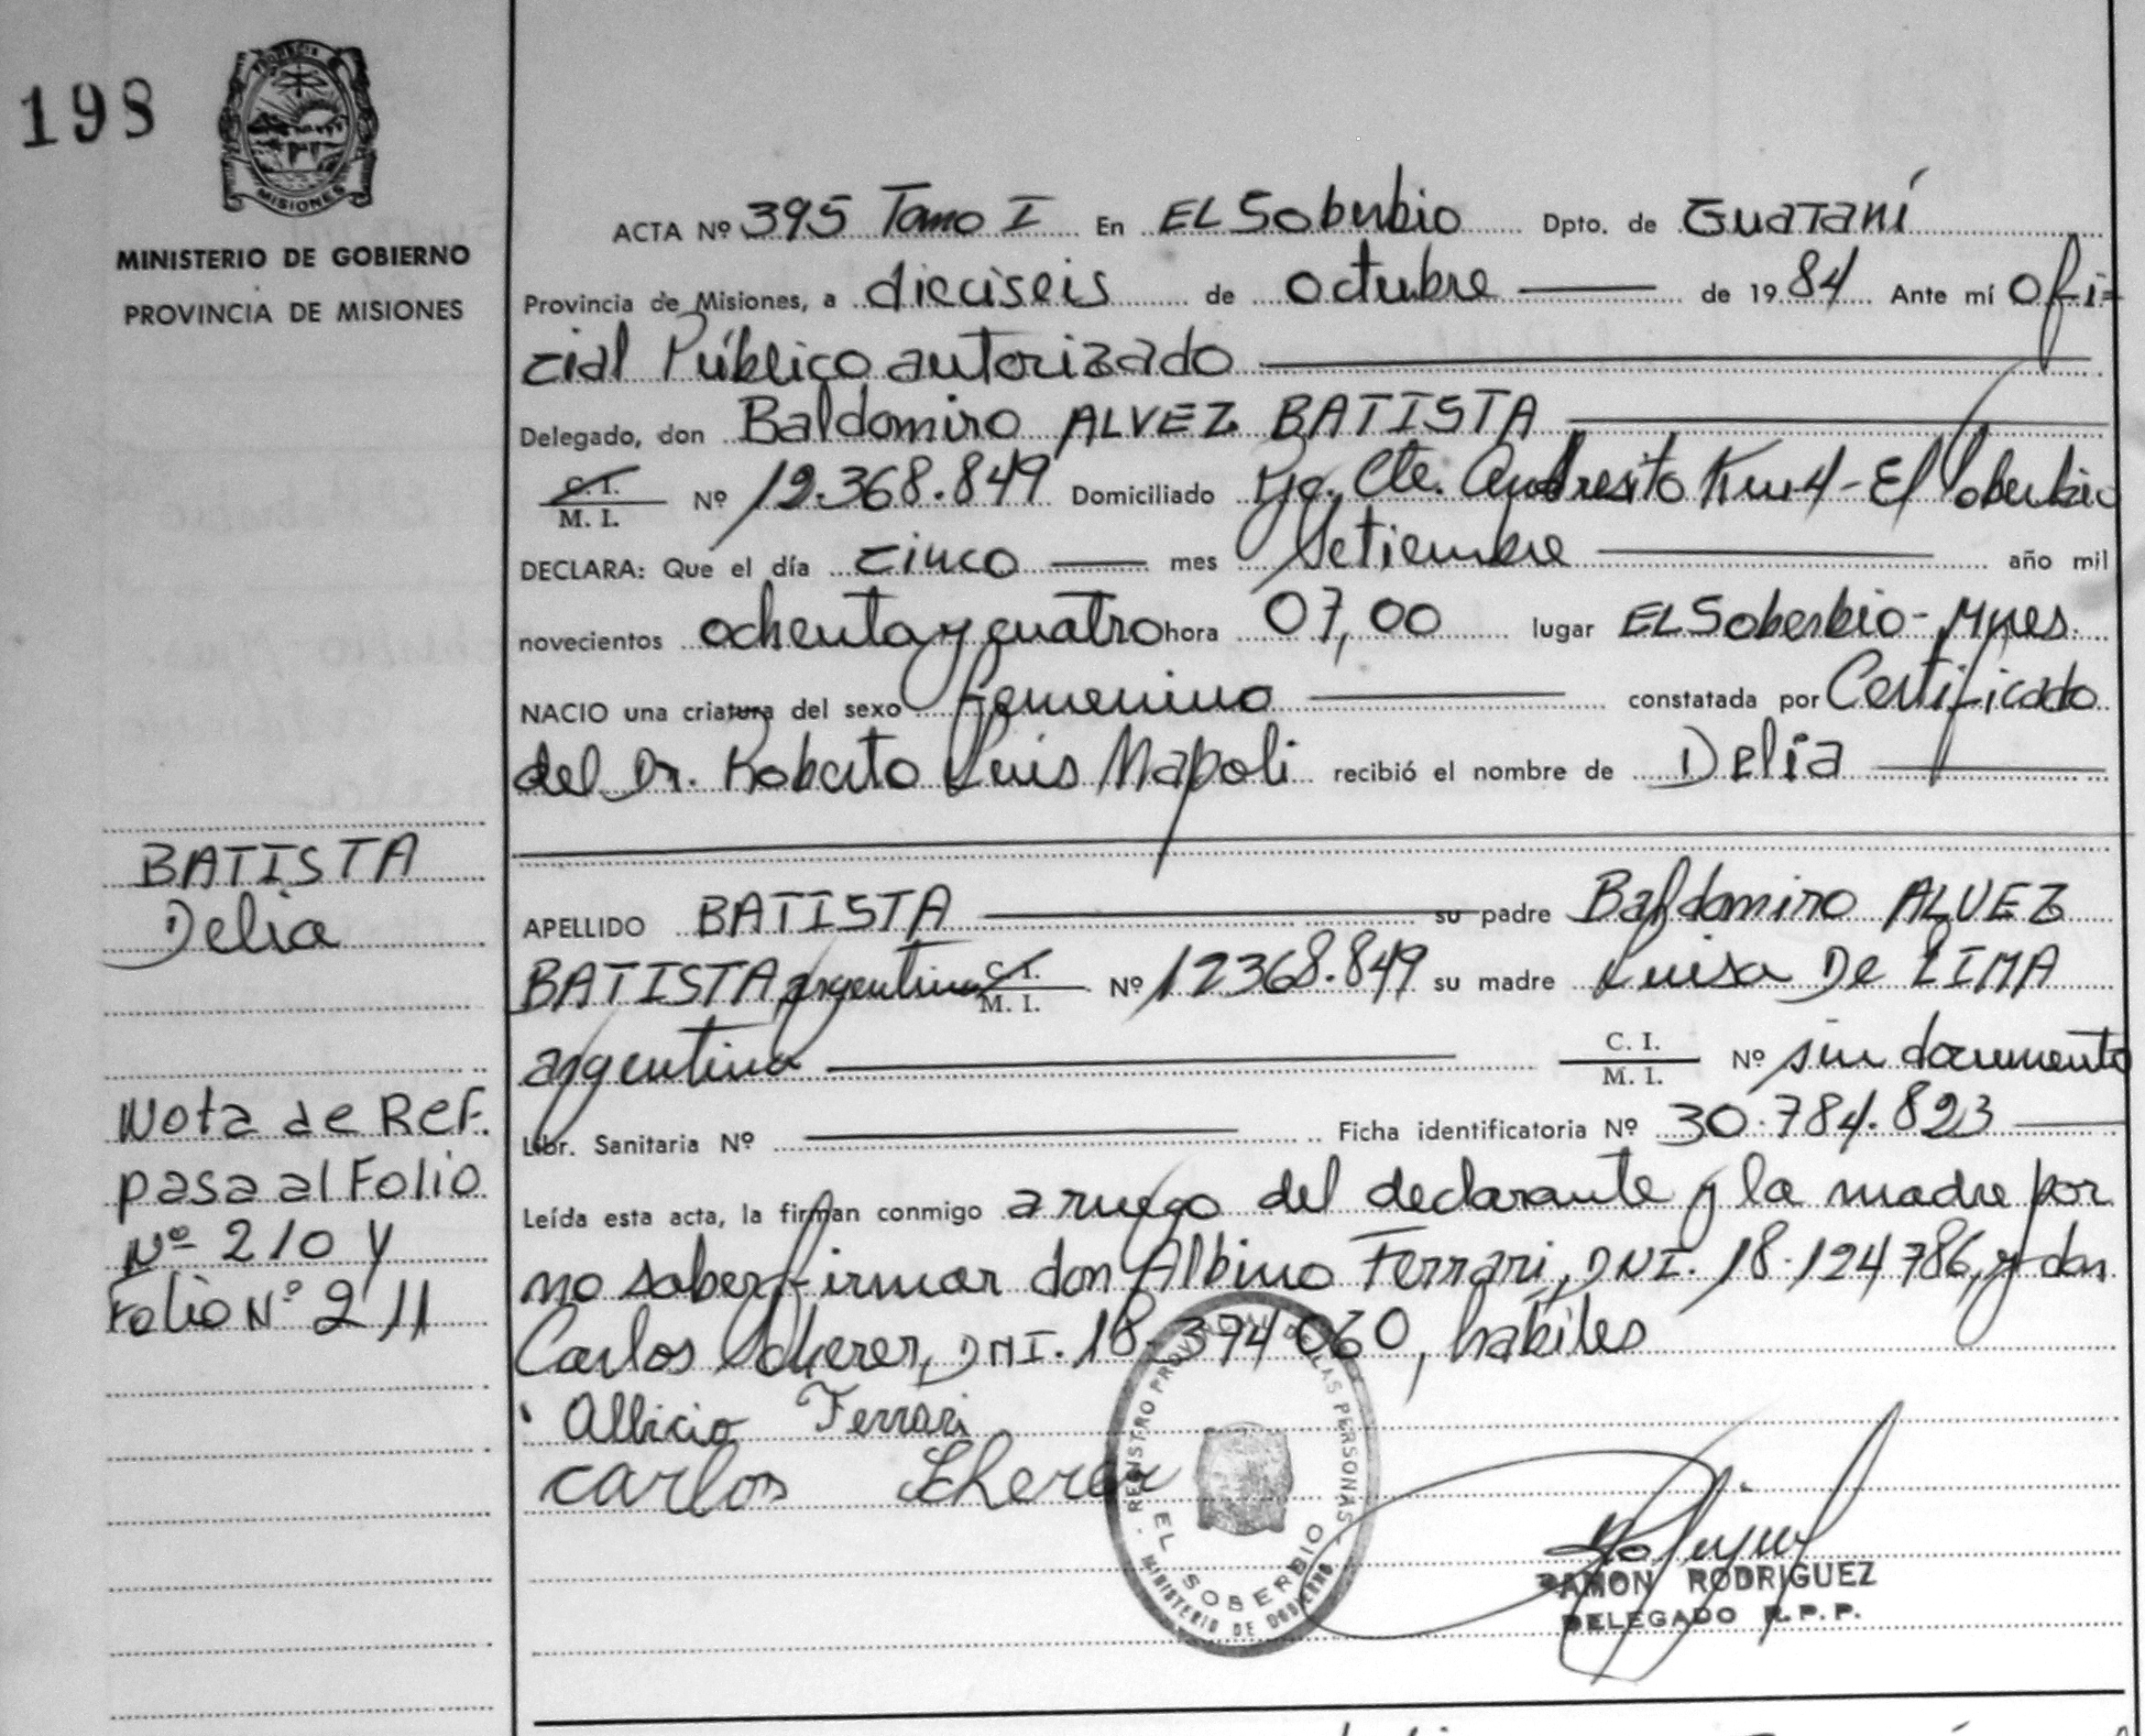 198
MISIONES
MINISTERIO DE GOBIERNO
PROVINCIA DE MISIONES
BATISTA
Delia
Nota de Ref.
pasa al Folio
Nº 210 y
Folio Nº 211
ACTA Nº 395 Tomo I En EL Soberbio Dpto. de GUARANÍ
Provincia de Misiones, a dieciseis de octubre de 1984 Ante mí Ofi=
cial Público autorizado
Delegado, don Baldomiro ALVEZ BATISTA
C. I.
M. I. Nº 12.368.849 Domiciliado Pje. Cte. Andresito Km 4 - El Soberbio
DECLARA: Que el día cinco mes Setiembre año mil
novecientos ochenta y cuatro hora 07,00 lugar EL Soberbio - Mnes.
NACIO una criatura del sexo femenino constatada por Certificado
del Dr. Roberto Luis Napoli recibió el nombre de Delia
APELLIDO BATISTA su padre Baldomiro ALVEZ
BATISTA argentino C. I.
M. I. Nº 12368.849 su madre Luisa De LIMA
argentina C. I.
M. I. Nº sin documento
Libr. Sanitaria Nº Ficha identificatoria Nº 30.784.823
Leída esta acta, la firman conmigo a ruego del declarante y la madre por
no saber firmar don Albino Ferrari, DNI. 18.124786, y don
Carlos Scherer, DNI. 18.394060, habiles
Albicio Ferrari
Carlos Scherer
REGISTRO PROVINCIAL DE LAS PERSONAS
EL SOBERBIO
MINISTERIO DE GOBIERNO
RAMON RODRIGUEZ
DELEGADO R.P.P.